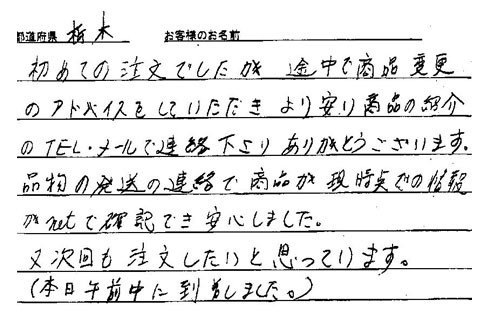 都道府県 栃木 お客様のお名前
初めての注文でしたが 途中で商品変更
のアドバイスをしていただき より安い商品の紹介
のTEL・メールで連絡下さり ありがとうございます。
品物の発送の連絡で商品が現時点での情報
がnetで確認でき安心しました。
又次回も注文したいと思っています。
(本日午前中に到着しました。)